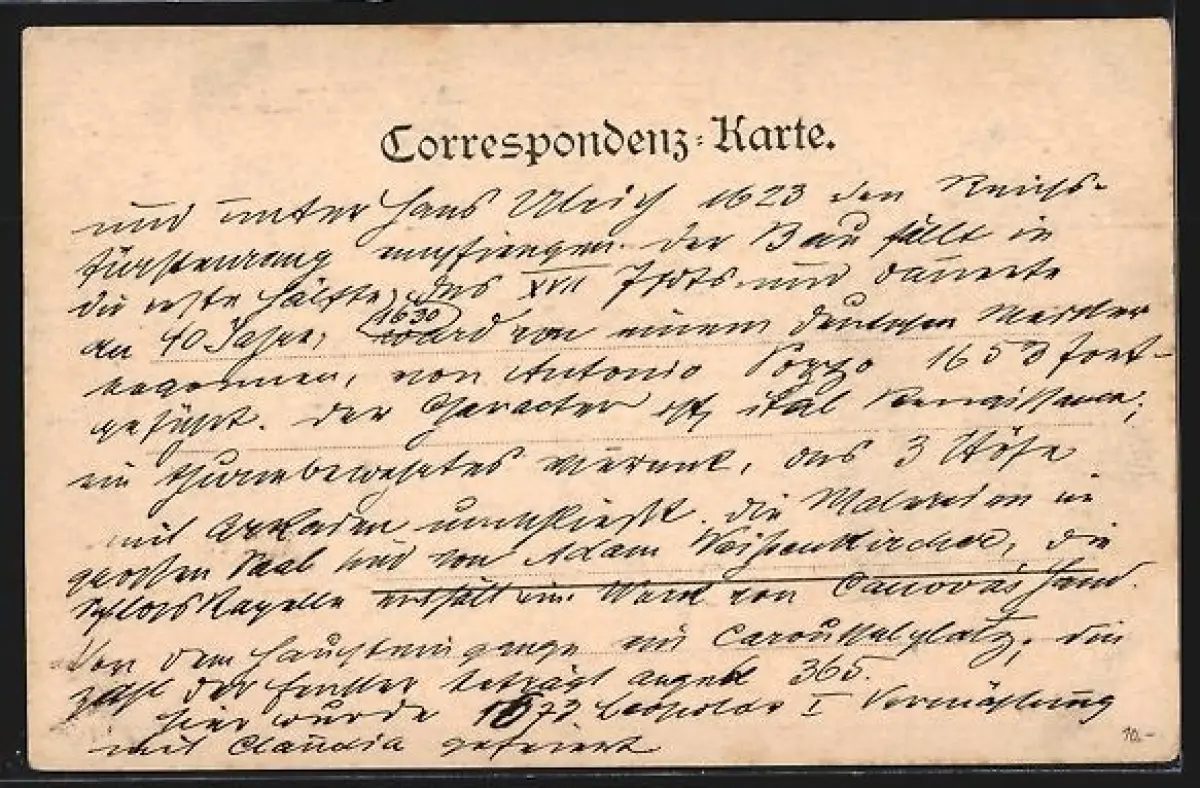 Correspondenz-Karte.
und unter Hans Ulrich 1623 den Reichs-
fürstenrang empfiengen. Der Bau fällt in
die erste Hälfte des XVII Jhdts und dauerte
an 40 Jahre, 1630 ward von einem deutschen Meister
begonnen, von Antonio Pozzo 1658 fort-
geführt. Der Character ist ital Renaissance;
ein thurmbewehrtes Viereck, das 3 Höfe
mit Arkaden umschließt. Die Malereien im
großen Saal sind von Adam Weißenkircher, die
Schlosskapelle enthält ein Werk von Canovas Hand.
Vor dem Haupteingange ein Carousselplatz; die
Zahl der Fenster beträgt angebl 365.
Hier wurde 1673 Leopolds I Vermählung
mit Claudia gefeiert
10.-